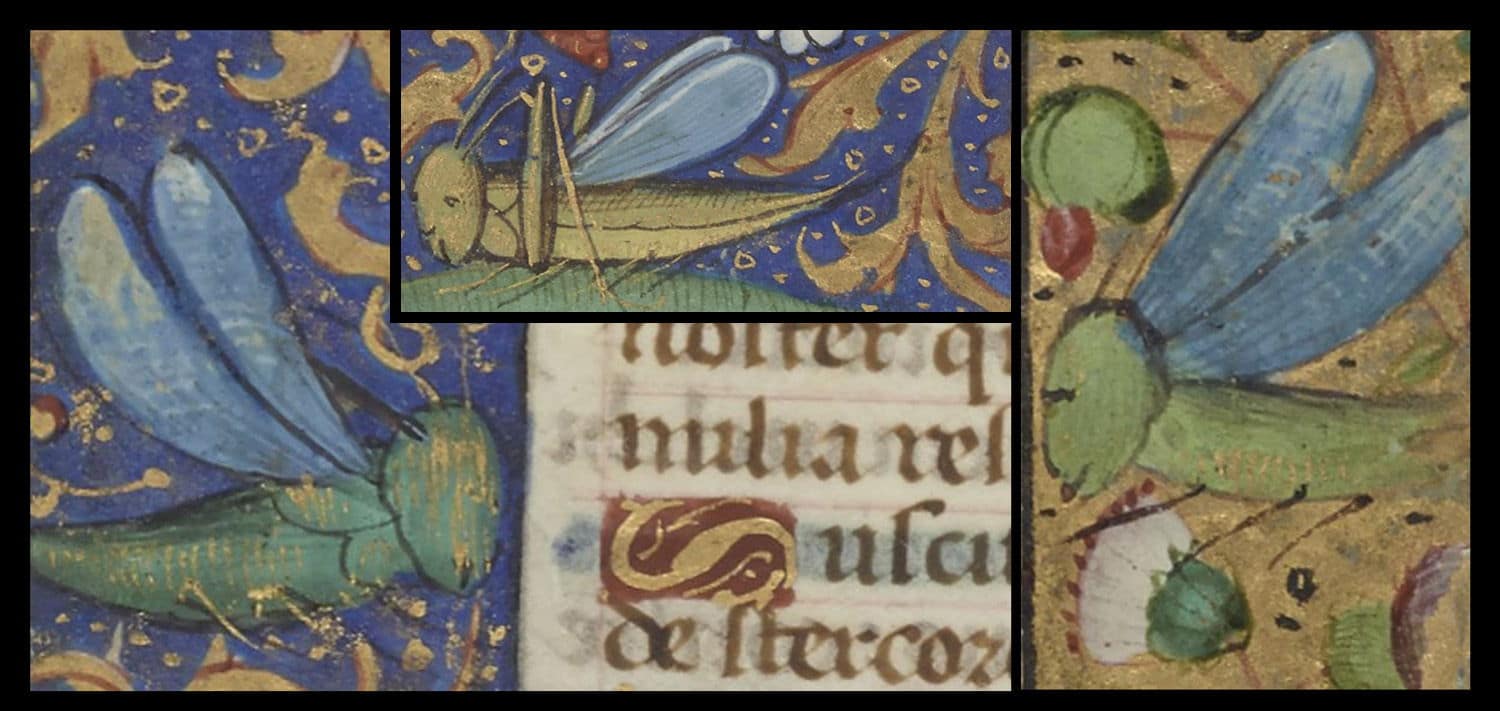 noſter q
milia reſ
Suſci
de ſtercor